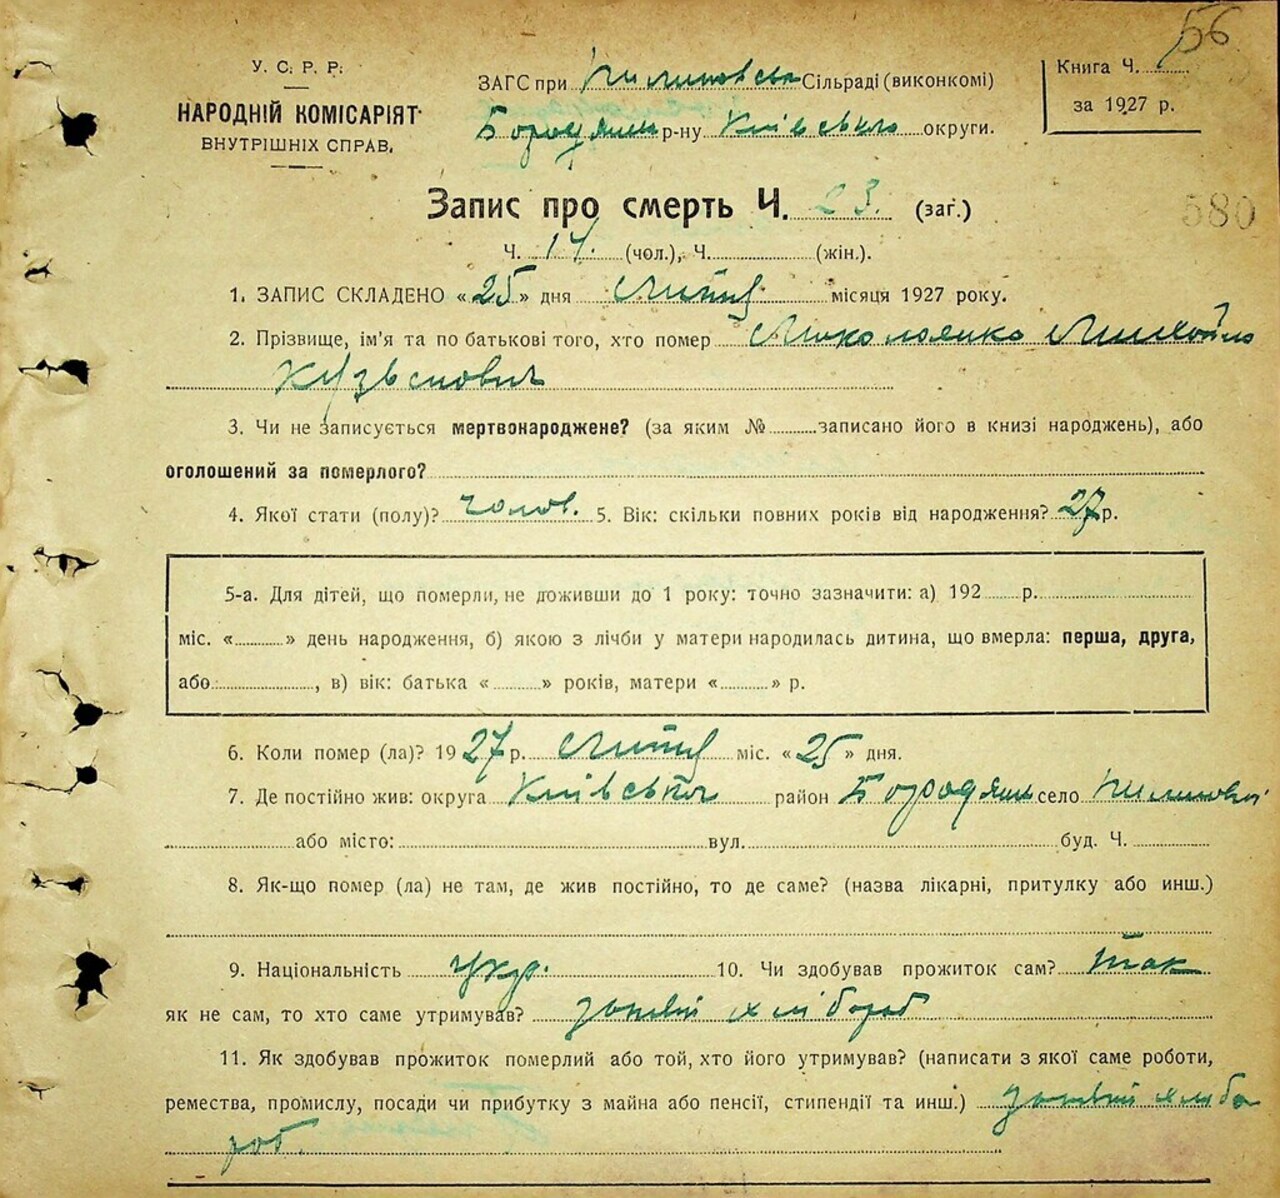 56
У. С. Р. Р.
НАРОДНІЙ КОМІСАРІЯТ
ВНУТРІШНІХ СПРАВ.
ЗАГС при Пилиповська Сільраді (виконкомі)
Бородянш р-ну Київська округи.
Книга Ч.
за 1927 р.
580
Запис про смерть Ч. 23. (заг.)
Ч. 14. (чол.), Ч. (жін.).
1. ЗАПИС СКЛАДЕНО «25» дня Липня місяця 1927 року.
2. Прізвище, ім'я та по батькові того, хто помер Миколаєнко Михайло
Кузьмович
3. Чи не записується мертвонароджене? (за яким № записано його в книзі народжень), або
оголошений за померлого?
4. Якої стати (полу)? чолов. 5. Вік: скільки повних років від народження? 27 р.
5-а. Для дітей, що померли, не доживши до 1 року: точно зазначити: а) 192 р.
міс. « » день народження, б) якою з лічби у матери народилась дитина, що вмерла: перша, друга,
або , в) вік: батька « » років, матери « » р.
6. Коли помер (ла)? 1927 р. Липня міс. «25» дня.
7. Де постійно жив: округа Київська район Бородянш село
або місто: вул. буд. Ч.
8. Як-що помер (ла) не там, де жив постійно, то де саме? (назва лікарні, притулку або инш.)
9. Національність укр. 10. Чи здобував прожиток сам? так
як не сам, то хто саме утримував? хлібороб
11. Як здобував прожиток померлий або той, хто його утримував? (написати з якої саме роботи,
ремества, промислу, посади чи прибутку з майна або пенсії, стипендії та инш.) хлібо
роб.